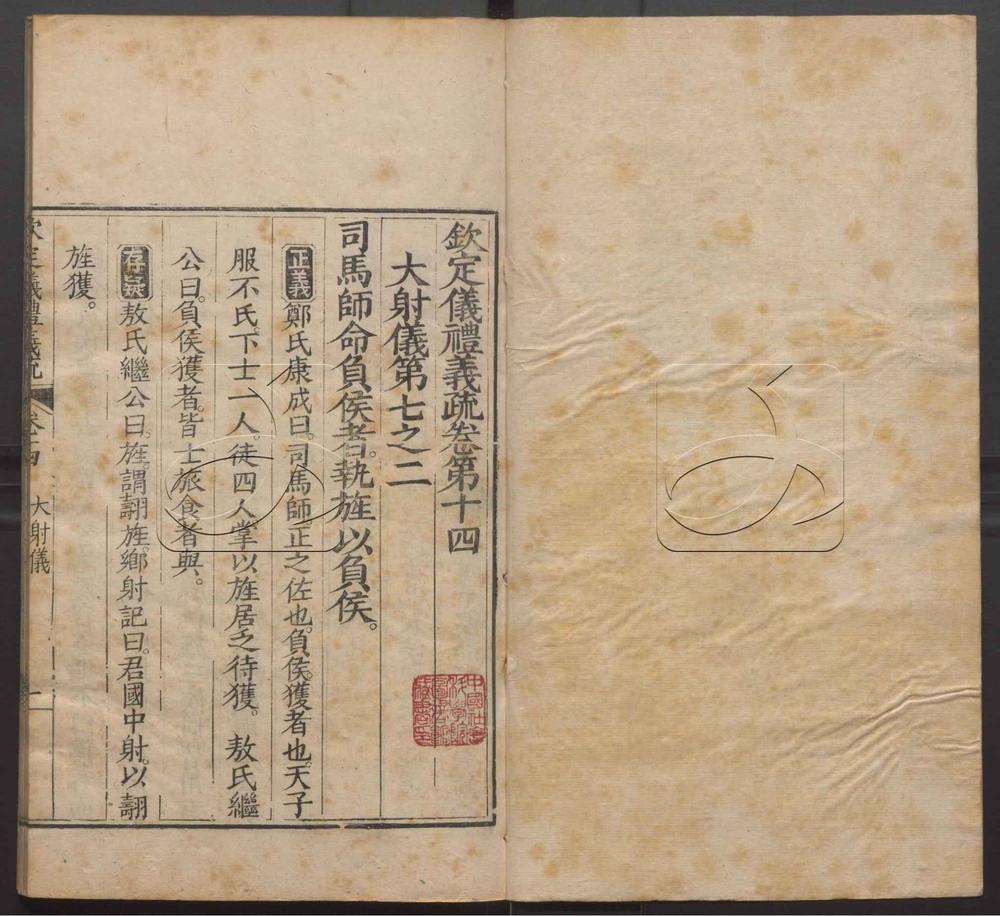 欽定儀禮義疏卷第十四
大射儀第七之二
司馬師命負侯者。執旌以負侯。
正義鄭氏康成曰。司馬師。正之佐也。負侯。獲者也。天子
服不氏。下士一人。徒四人。掌以旌居乏待獲。 敖氏繼
公曰。負侯獲者。皆士旅食者與。
存疑敖氏繼公曰。旌。謂翿旌。鄉射記曰。君國中射。以翿
旌獲。
欽定儀禮義疏 卷十四 大射儀 一